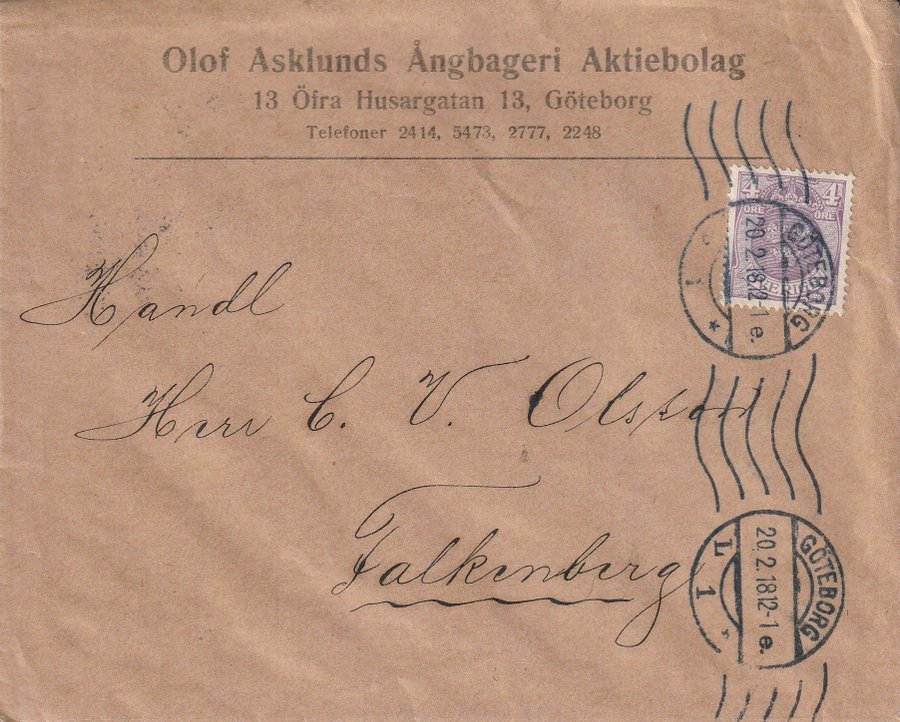 Olof Asklunds Ångbageri Aktiebolag
13 Öfra Husargatan 13, Göteborg
Telefoner 2414, 5473, 2777, 2248
4 4
ÖRE ÖRE
SVERIGE
GÖTEBORG
20.2.18 12-1 e.
1
*
Handl
Herr C. V. Olsson
Falkenberg
GÖTEBORG
20.2.18 12-1 e.
L 1
*